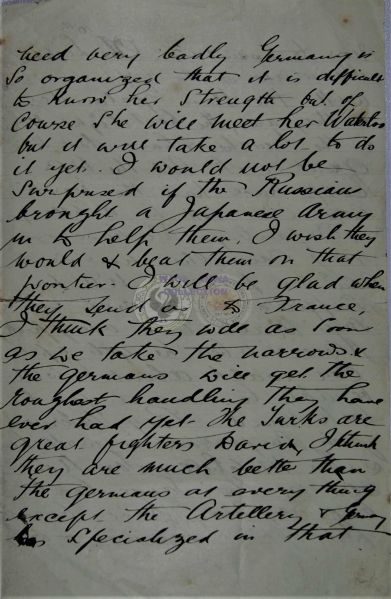 need very badly Germany is
so organized that it is difficult
to know her strength but of
course she will meet her Waterloo
but it will take a lot to do
it yet. I would not be
surprised if the Russians
brought a Japanese Army
in to help them, I wish they
would & beat them on that
frontier. I will be glad when
they send to France,
I think they will as soon
as we take the narrows &
the Germans will get the
roughest handling they have
ever had yet The Turks are
great fighters David, I think
they are much better than
the Germans at every thing
except the Artillery &
has specialized in that